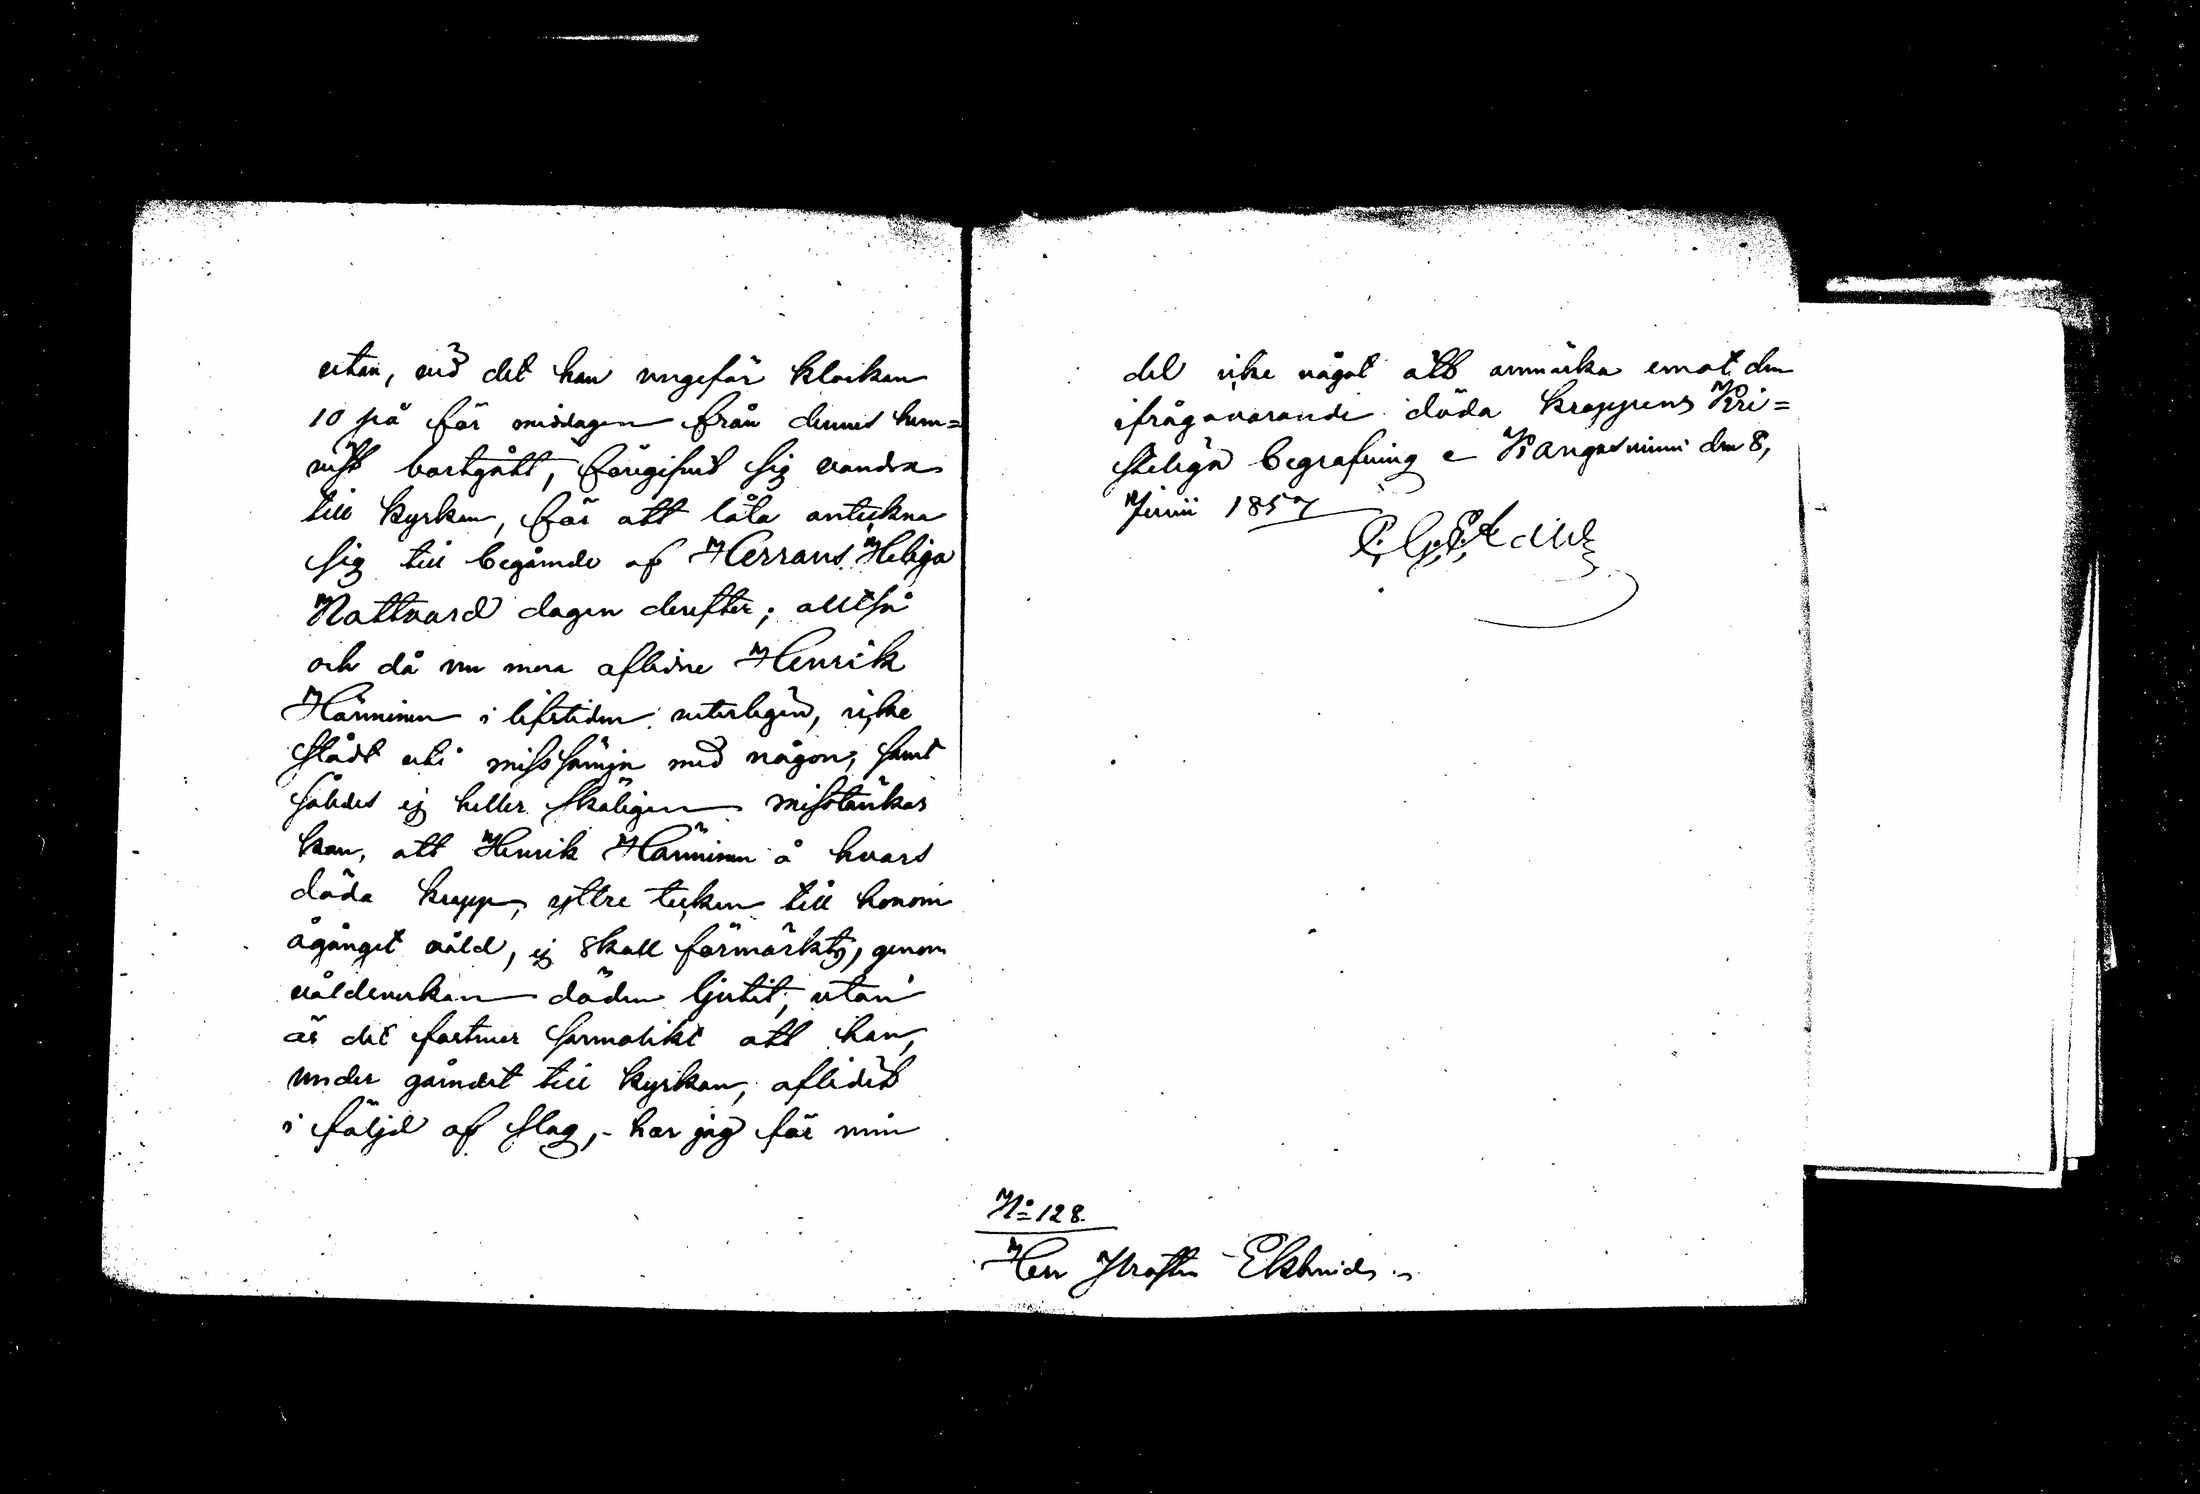 utan, vid det han ungefär klockan
10 på för middagen från dennes hem=
vist bortgått, föregifvit sig vandra
till kyrkan, för att låta anteckna
sig till begående af Herrans Heliga
Nattvard dagen derefter; alltså
och då nu mera aflidne Henrik
Hänninen i lifstiden veterligen, icke
stådt uti misssämja med någon, samt
således ej heller skäligen misstänkas
kan, att Henrik Hänninen å hvars
döda kropp, yttre tecken till honom
ågånget våld, ej skall förmärkts, genom
våldsverkan döden ljutit, utan
är det fastmer sannolikt att han,
under gåendet till kyrkan, aflidit
i följd af slag,- har jag för min
del icke något att anmärka emot den
ifrågavarande döda kroppens Kri=
steliga begrafning e Kangasniemi den 8,
Junii 1857
No 128.
Herr Prosten